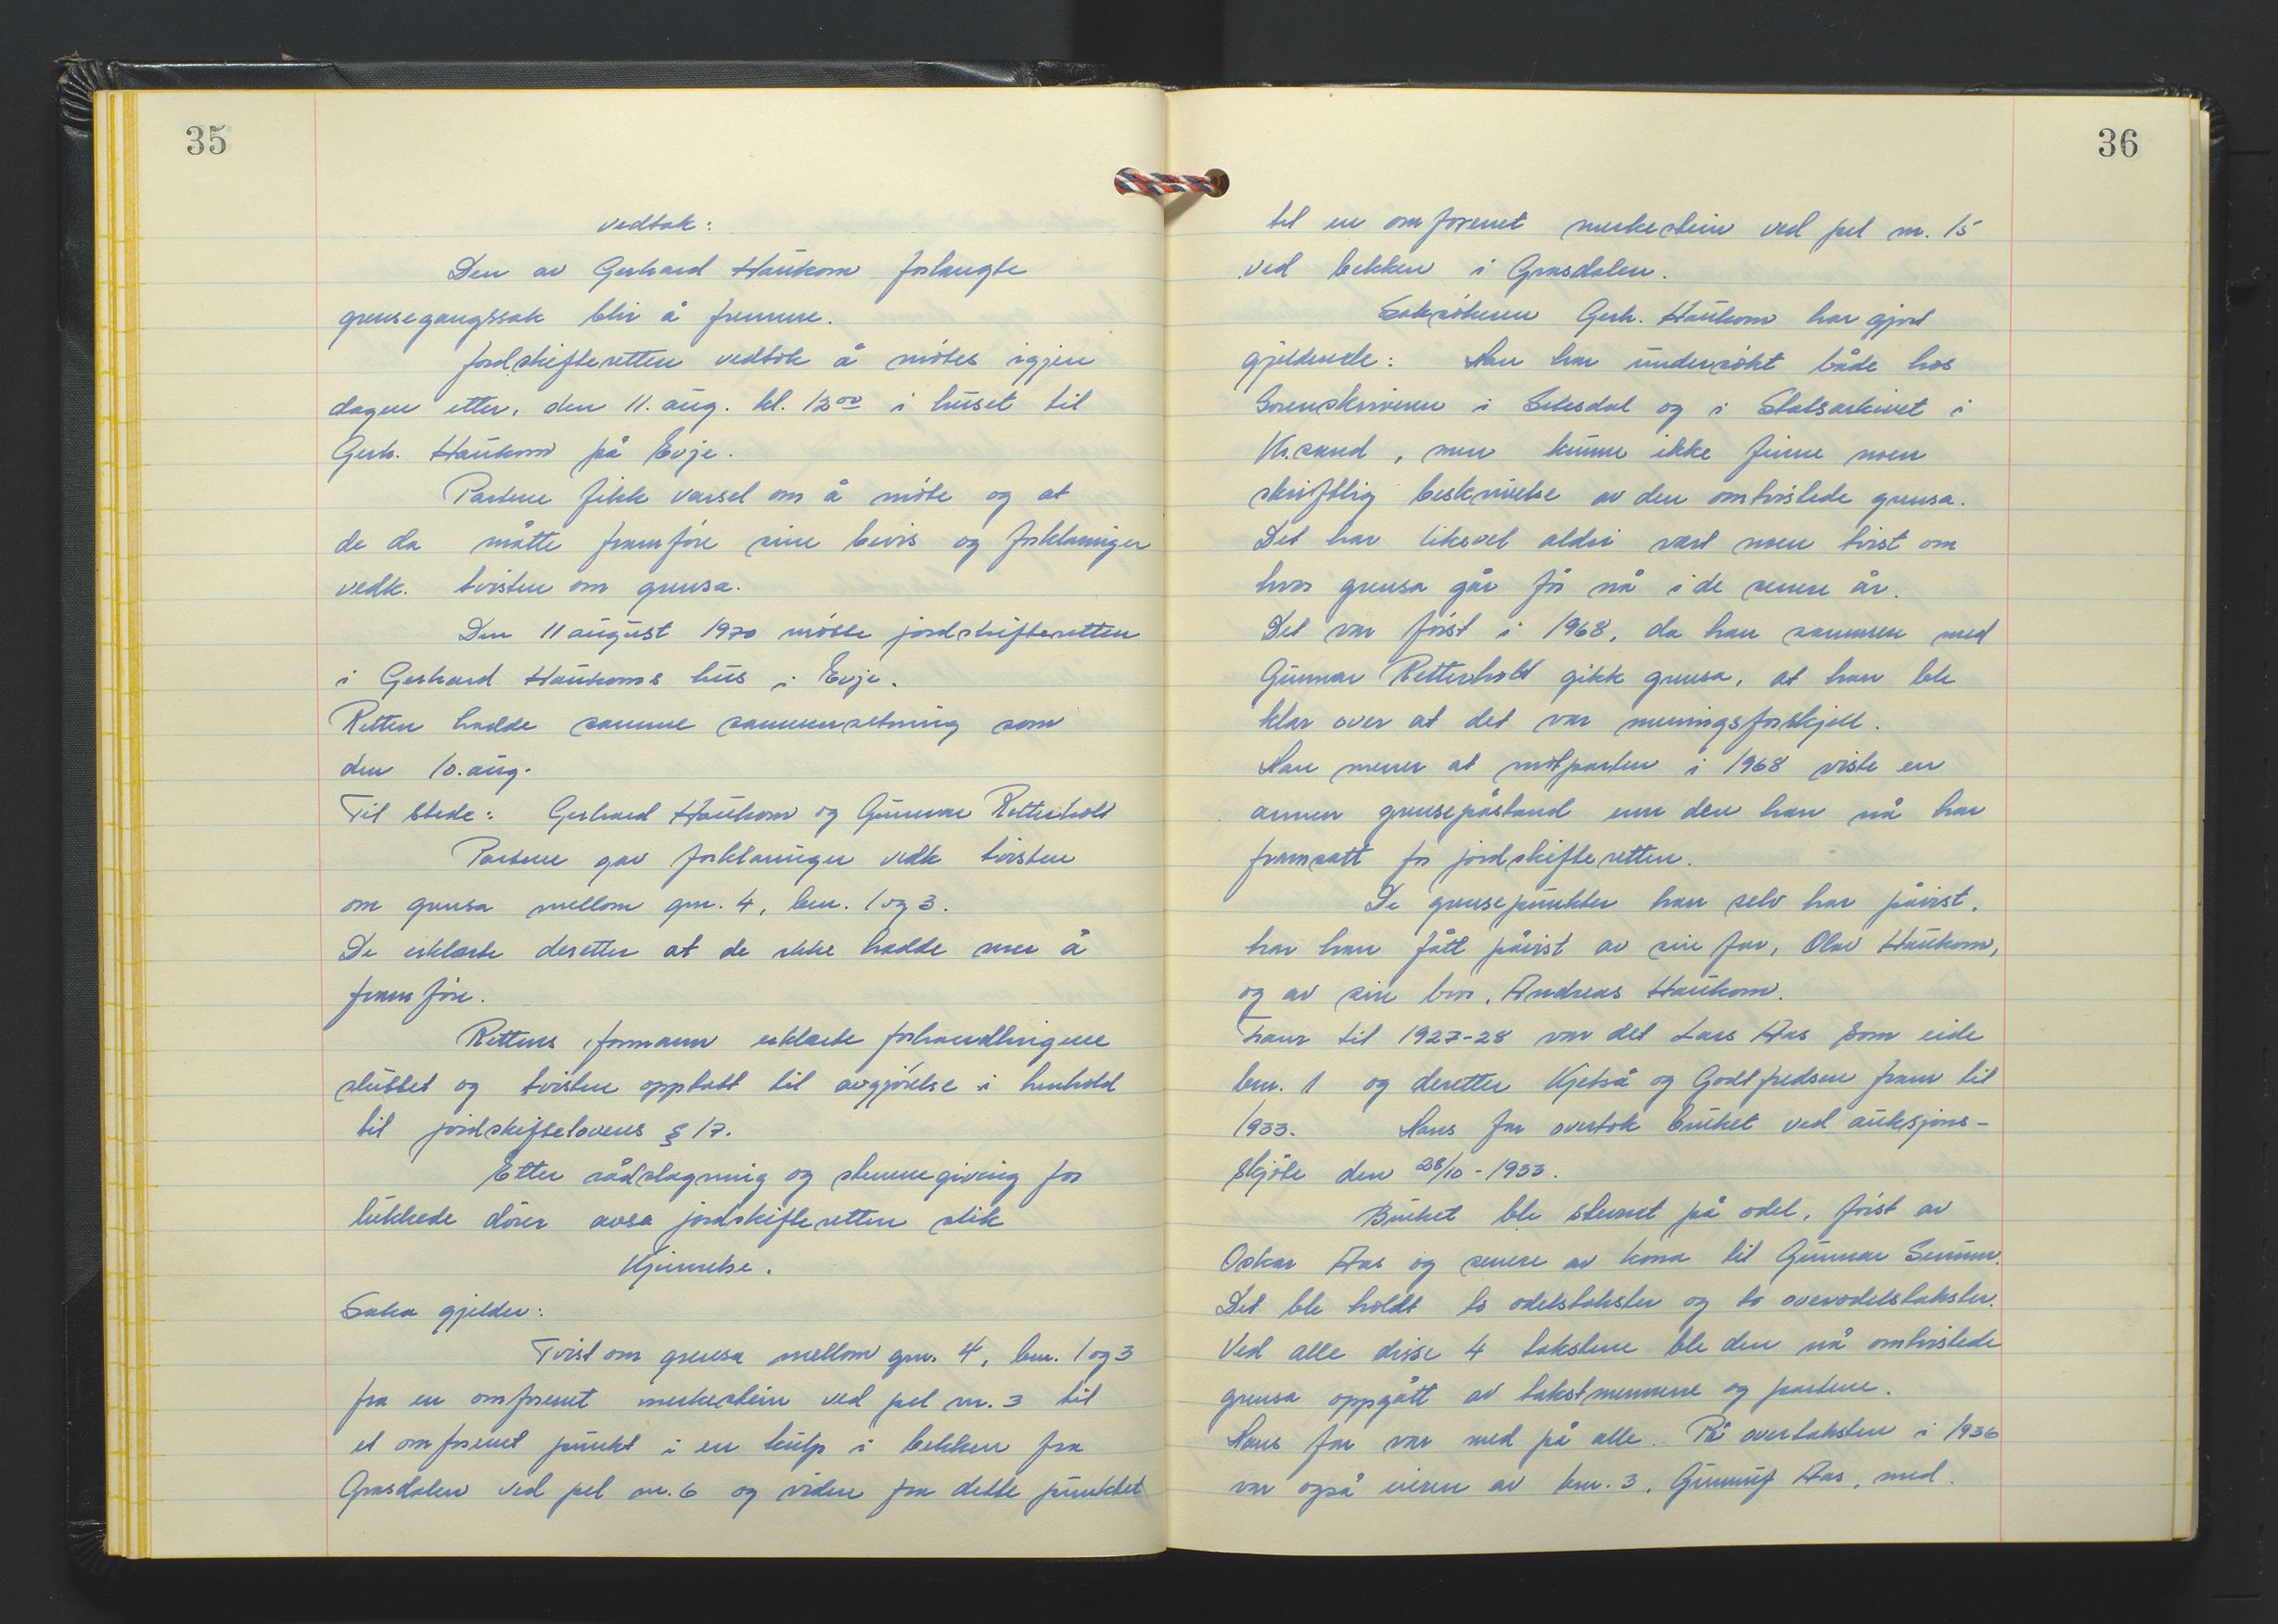 35
vedtak:
Den av Gerhard Haukom forlangte
grensegangssak blir å fremme.
Jordskifteretten vedtok å møtes igjen
dagen etter, den 11. aug. kl. 13⁰⁰ i huset til
Gerh. Haukom på Evje.
Partene fikk varsel om å møte og at
de da måtte framføre sine bevis og forklaringer
vedk. tvisten om grensa.
Den 11 august 1970 møtte jordskifteretten
i Gerhard Haukoms hus i Evje.
Retten hadde samme sammensetning som
den 10. aug.
Til stede: Gerhard Haukom og Gunnar Retterholt
Partene gav forklaringer vedk tvisten
om grensa mellom gnr. 4, bnr. 1 og 3.
De erklærte deretter at de ikke hadde mer å
framføre.
Rettens formann erklærte forhandlingene
sluttet og tvisten opptatt til avgjørelse i henhold
til jordskiftelovens § 17.
Etter rådslagning og stemmegiving for
lukkede dører avsa jordskifteretten slik
Kjennelse.
Saka gjelder:
Tvist om grensa mellom gnr. 4, bnr. 1 og 3
fra en omforenet merkestein ved pel nr. 3 til
et omforenet punkt i en kulp i bekken fra
Grasdalen ved pel nr. 6 og videre fra dette punktet
36
til en omforenet merkestein ved pel nr. 15
ved bekken i Grasdalen.
Saksøkeren Gerh. Haukom har gjort
gjeldende: Han har undersøkt både hos
Sorenskriveren i Setesdal og i Statsarkivet i
Kr.sand, men kunne ikke finne noen
skriftlig beskrivelse av den omtvistede grensa.
Det har likevel aldri vært noen tvist om
hvor grensa går før nå i de senere år.
Det var først i 1968, da han sammen med
Gunnar Retterholt gikk grensa, at han ble
klar over at det var meningsforskjell.
Han mener at motparten i 1968 viste en
annen grensepåstand enn den han nå har
framsatt for jordskifteretten.
De grensepunkter han selv har påvist,
har han fått påvist av sin far, Olav Haukom,
og av sin bror, Andreas Haukom.
Fram til 1927-28 var det Lars Aas som eide
bnr. 1 og deretter Kjetså og Godtfredsen fram til
1933. Hans far overtok bruket ved auksjons-
skjøte den 28/10-1933.
Bruket ble stevnet på odel, først av
Oskar Aas og senere av kona til Gunnar Senum.
Det ble holdt to odelstakster og to overodelstakster.
Ved alle disse 4 takstene ble den nå omtvistede
grensa oppgått av takstmennene og partene.
Hans far var med på alle. På overtaksten i 1936
var også eieren av bnr. 3, Gunnuf Aas, med.